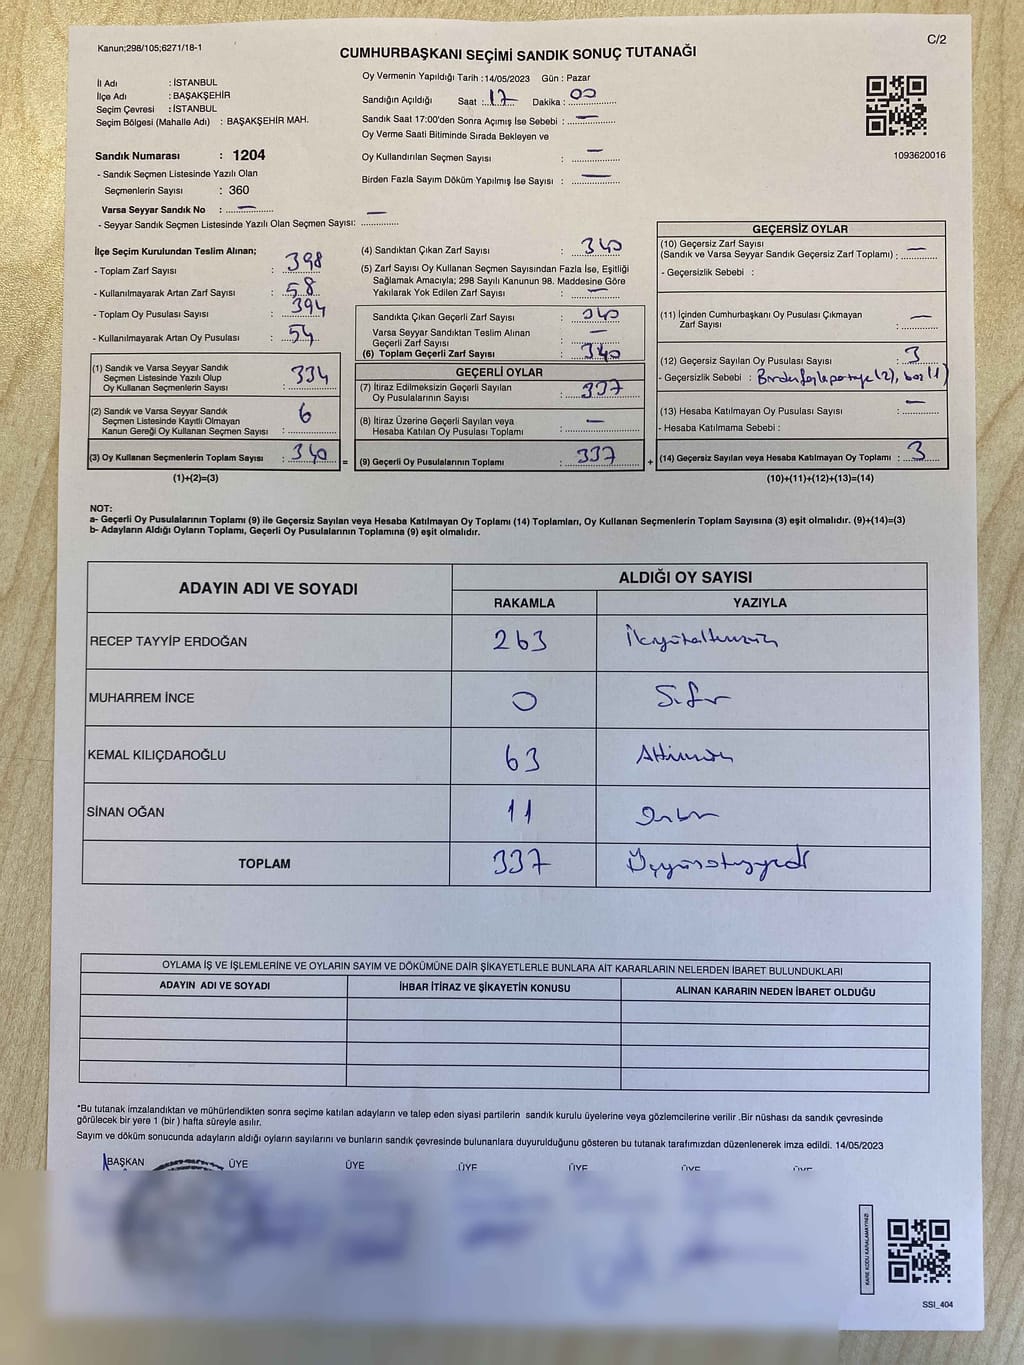 Kanun;298/105;6271/18-1
C/2
CUMHURBAŞKANI SEÇİMİ SANDIK SONUÇ TUTANAĞI
İl Adı : İSTANBUL
İlçe Adı : BAŞAKŞEHİR
Seçim Çevresi : İSTANBUL
Seçim Bölgesi (Mahalle Adı) : BAŞAKŞEHİR MAH.
Sandık Numarası : 1204
- Sandık Seçmen Listesinde Yazılı Olan
Seçmenlerin Sayısı : 360
Varsa Seyyar Sandık No : —
- Seyyar Sandık Seçmen Listesinde Yazılı Olan Seçmen Sayısı: —
Oy Vermenin Yapıldığı Tarih :14/05/2023 Gün : Pazar
Sandığın Açıldığı Saat : 17 Dakika : 00
Sandık Saat 17:00'den Sonra Açımış İse Sebebi : —
Oy Verme Saati Bitiminde Sırada Bekleyen ve
Oy Kullandırılan Seçmen Sayısı : —
Birden Fazla Sayım Döküm Yapılmış İse Sayısı : —
1093620016
İlçe Seçim Kurulundan Teslim Alınan;
- Toplam Zarf Sayısı : 398
- Kullanılmayarak Artan Zarf Sayısı : 58
- Toplam Oy Pusulası Sayısı : 394
- Kullanılmayarak Artan Oy Pusulası : 54
(1) Sandık ve Varsa Seyyar Sandık
Seçmen Listesinde Yazılı Olup
Oy Kullanan Seçmenlerin Sayısı : 334
(2) Sandık ve Varsa Seyyar Sandık
Seçmen Listesinde Kayıtlı Olmayan
Kanun Gereği Oy Kullanan Seçmen Sayısı : 6
(3) Oy Kullanan Seçmenlerin Toplam Sayısı : 340 =
(1)+(2)=(3)
(4) Sandıktan Çıkan Zarf Sayısı : 340
(5) Zarf Sayısı Oy Kullanan Seçmen Sayısından Fazla İse, Eşitliği
Sağlamak Amacıyla; 298 Sayılı Kanunun 98. Maddesine Göre
Yakılarak Yok Edilen Zarf Sayısı : —
Sandıkta Çıkan Geçerli Zarf Sayısı : 340
Varsa Seyyar Sandıktan Teslim Alınan
Geçerli Zarf Sayısı : —
(6) Toplam Geçerli Zarf Sayısı : 340
GEÇERLİ OYLAR
(7) İtiraz Edilmeksizin Geçerli Sayılan
Oy Pusulalarının Sayısı : 337
(8) İtiraz Üzerine Geçerli Sayılan veya
Hesaba Katılan Oy Pusulası Toplamı : —
(9) Geçerli Oy Pusulalarının Toplamı : 337 +
GEÇERSİZ OYLAR
(10) Geçersiz Zarf Sayısı
(Sandık ve Varsa Seyyar Sandık Geçersiz Zarf Toplamı) : —
- Geçersizlik Sebebi :
(11) İçinden Cumhurbaşkanı Oy Pusulası Çıkmayan
Zarf Sayısı : —
(12) Geçersiz Sayılan Oy Pusulası Sayısı : 3
- Geçersizlik Sebebi : (2), boş (1)
(13) Hesaba Katılmayan Oy Pusulası Sayısı : —
- Hesaba Katılmama Sebebi :
(14) Geçersiz Sayılan veya Hesaba Katılmayan Oy Toplamı : 3
(10)+(11)+(12)+(13)=(14)
NOT:
a- Geçerli Oy Pusulalarının Toplamı (9) ile Geçersiz Sayılan veya Hesaba Katılmayan Oy Toplamı (14) Toplamları, Oy Kullanan Seçmenlerin Toplam Sayısına (3) eşit olmalıdır. (9)+(14)=(3)
b- Adayların Aldığı Oyların Toplamı, Geçerli Oy Pusulalarının Toplamına (9) eşit olmalıdır.
ADAYIN ADI VE SOYADI
ALDIĞI OY SAYISI
RAKAMLA YAZIYLA
RECEP TAYYİP ERDOĞAN 263
MUHARREM İNCE 0 Sıfır
KEMAL KILIÇDAROĞLU 63
SİNAN OĞAN 11
TOPLAM 337
OYLAMA İŞ VE İŞLEMLERİNE VE OYLARIN SAYIM VE DÖKÜMÜNE DAİR ŞİKAYETLERLE BUNLARA AİT KARARLARIN NELERDEN İBARET BULUNDUKLARI
ADAYIN ADI VE SOYADI İHBAR İTİRAZ VE ŞİKAYETİN KONUSU ALINAN KARARIN NEDEN İBARET OLDUĞU
*Bu tutanak imzalandıktan ve mühürlendikten sonra seçime katılan adayların ve talep eden siyasi partilerin sandık kurulu üyelerine veya gözlemcilerine verilir .Bir nüshası da sandık çevresinde
görülecek bir yere 1 (bir ) hafta süreyle asılır.
Sayım ve döküm sonucunda adayların aldığı oyların sayılarını ve bunların sandık çevresinde bulunanlara duyurulduğunu gösteren bu tutanak tarafımızdan düzenlenerek imza edildi. 14/05/2023
BAŞKAN ÜYE ÜYE ÜYE ÜYE ÜYE ÜYE
KARE KODU KARALAMAYINIZ!
SSI_404